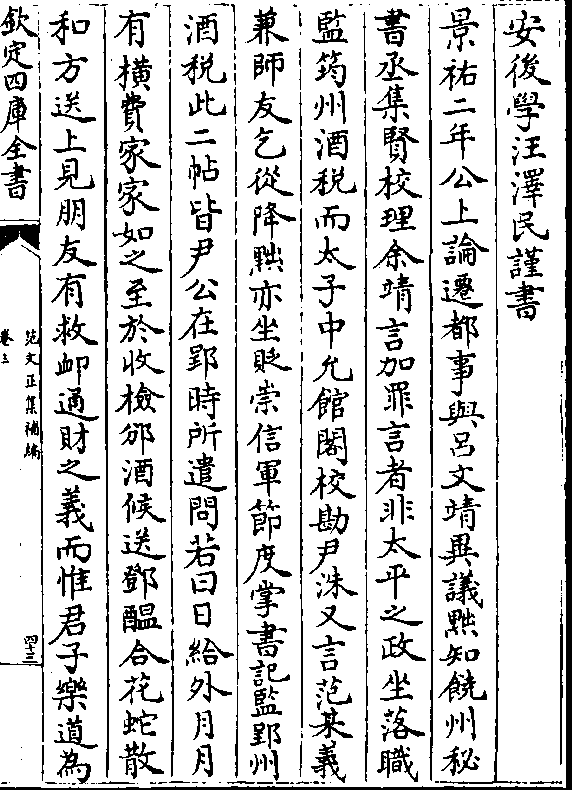 安後學汪澤民謹書
景祐二年公上論遷都事與呂文靖異議黜知饒州秘
書丞集賢校理余靖言加罪言者非太平之政坐落職
監筠州酒税而太子中允館閣校勘尹洙又言范某義
兼師友乞從降黜亦坐貶崇信軍節度掌書記監郢州
酒税此二帖皆尹公在郢時所遣問若曰日給外月月
有横費家家如之至於收檢邠酒候送鄧醖合花蛇散
和方送上見朋友有救卹通財之義而惟君子樂道為
欽定四庫全書
范文正集補編
卷三
四十三